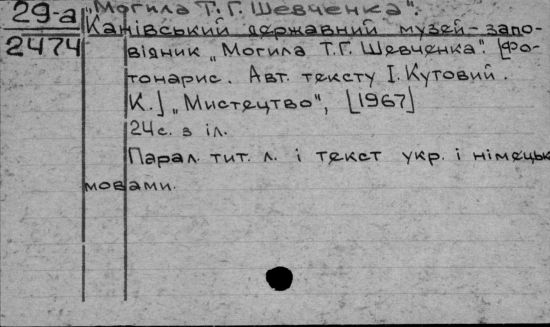 29-а
2474
„Могила Т. Г. Шевченка".
Канівський державний музей-запо-
відник „Могила Т.Г. Шевченка". [Фо-
тонарис. Авт. тексту І. Кутовий.
К.] „Мистецтво", [1967]
24с. з іл.
Парал. тит. л. і текст укр. і німецьк.
мовами.